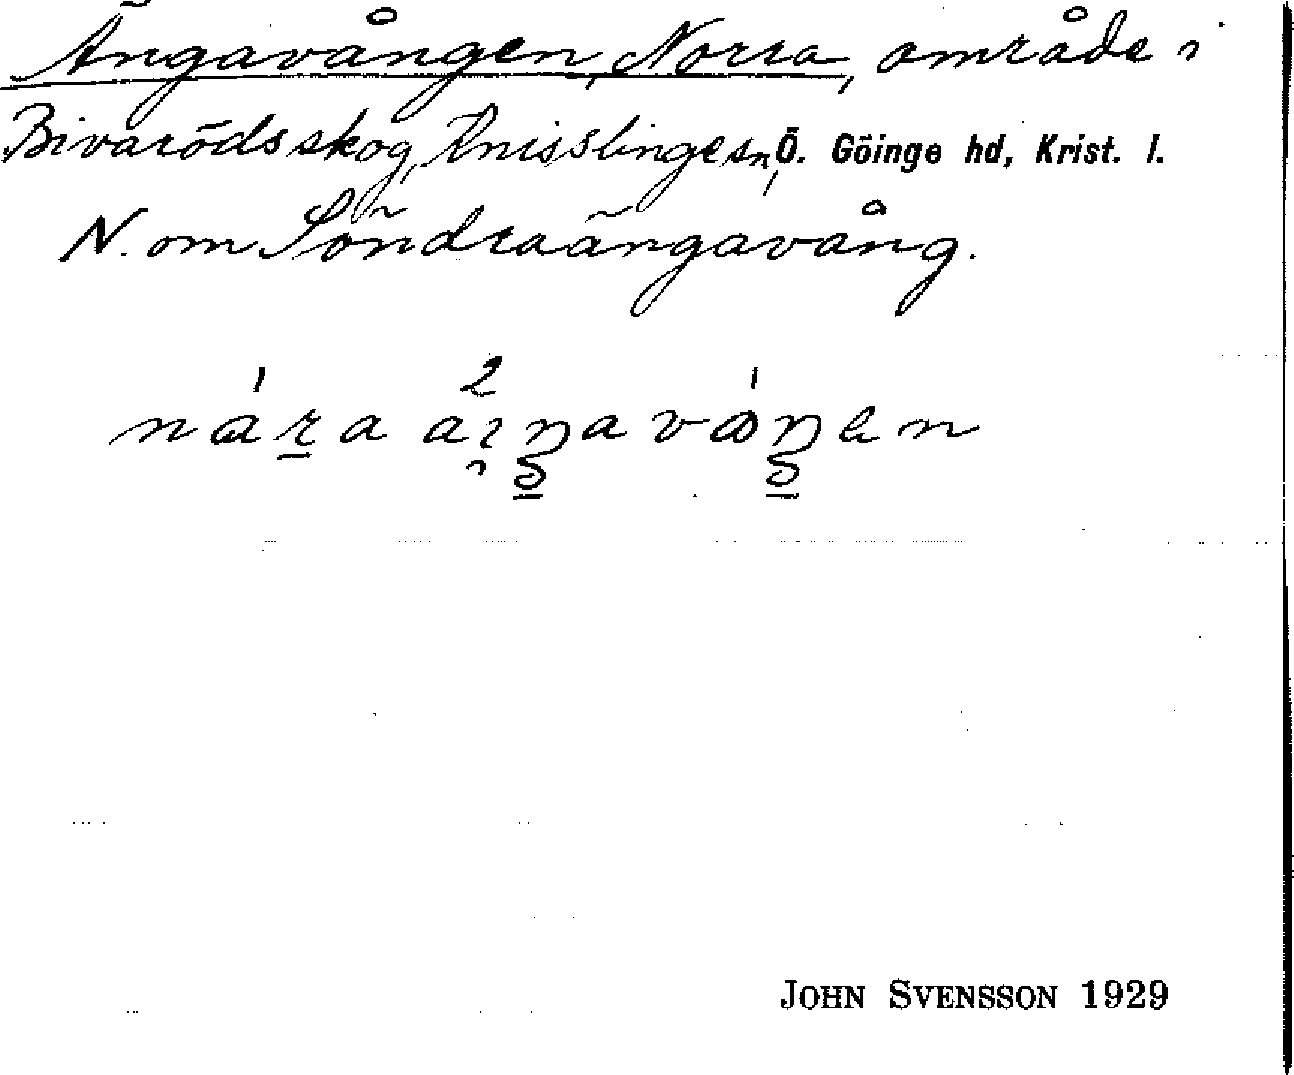 Ängavången, Norra, område i
Bivarödsskog, Knisslinge sn, Ö. Göinge hd, Krist. l.
N. om Söndraängavång.
JOHN SVENSSON 1929